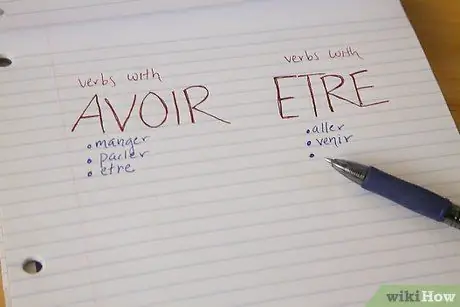 verbs with
AVOIR
• manger
• parler
• etre
verbs with
ETRE
• aller
• venir
•
wikiHow